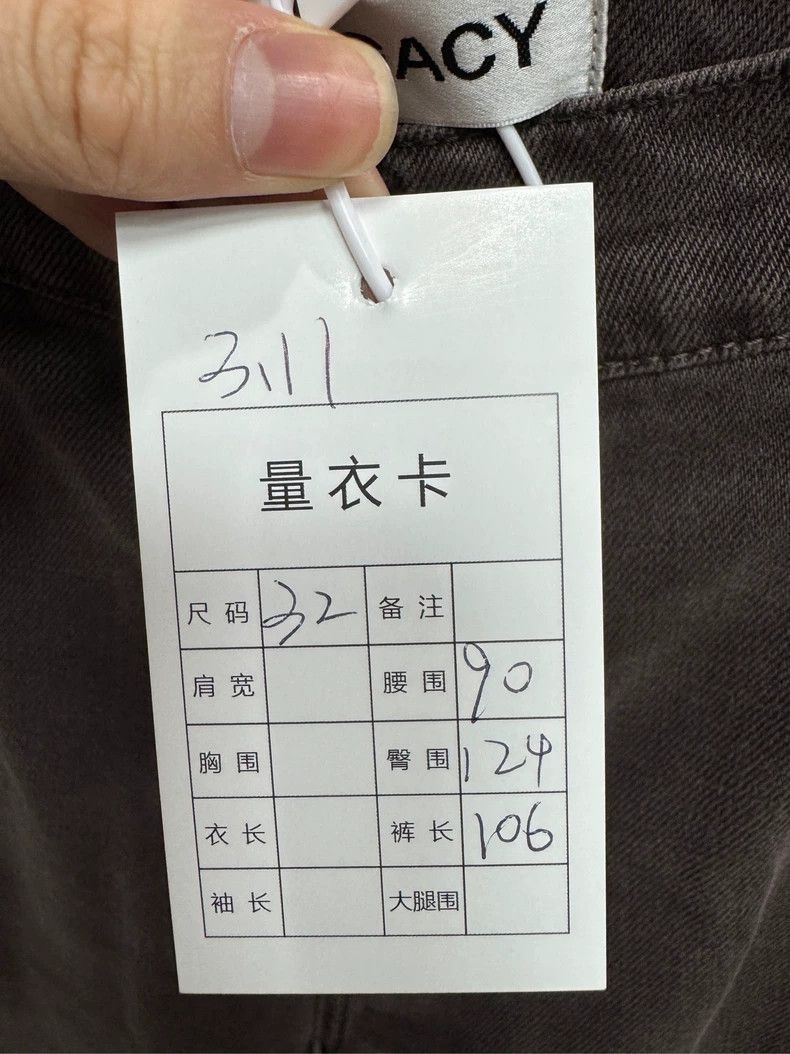 GACY
3.11
量衣卡
尺码 32 备注
肩宽 腰围 90
胸围 臀围 124
衣长 裤长 106
袖长 大腿围